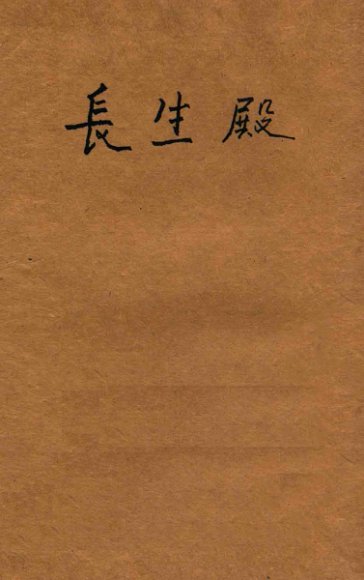 長生殿